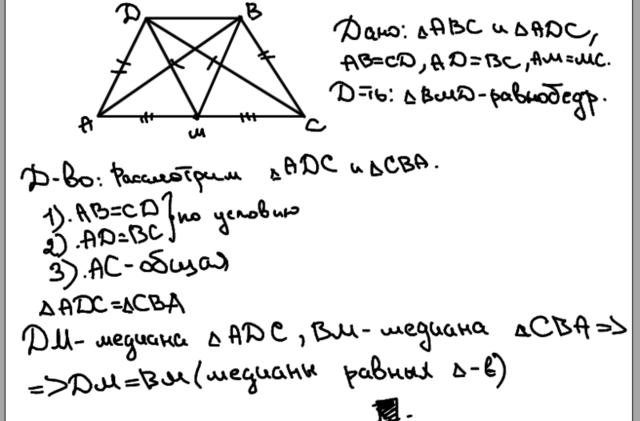 D B
A M C
Дано: △ABC и △ADC,
AB=CD, AD=BC, AM=MC.
D-ть: △BMD-равнобедр.
Д-во: Рассмотрим △ADC и △CBA.
1). AB=CD } по условию
2). AD=BC
3). AC-общая
△ADC=△CBA
DM-медиана △ADC, BM-медиана △CBA=>
=>DM=BM(медианы равных △-в)